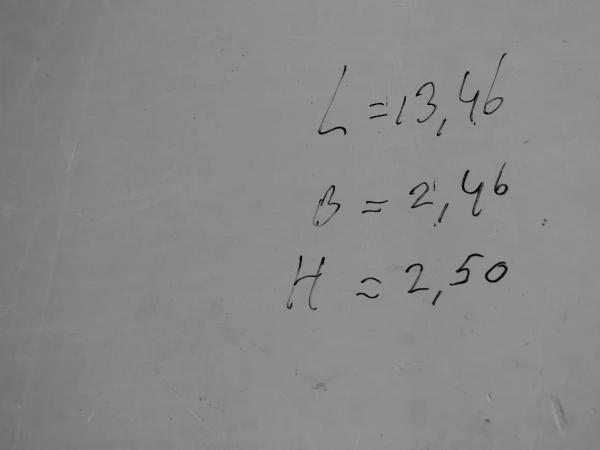 L = 13,46
B = 2,46
H = 2,50